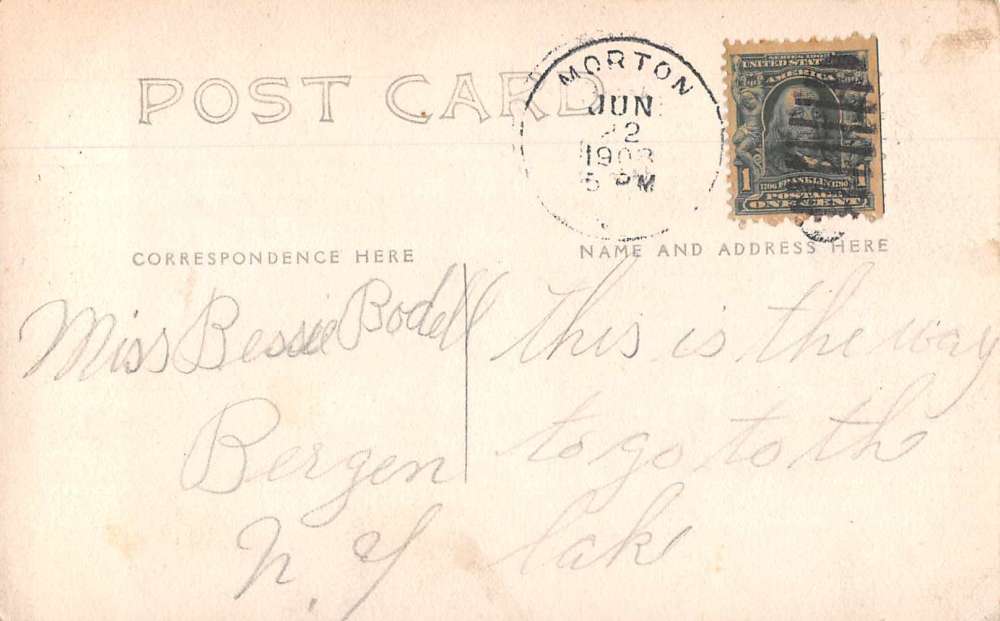 POST CARD
MORTON
JUN
22
1908
5 PM
SERIES 1902
UNITED STATES
AMERICA
1 1706 FRANKLIN 1790 1
POSTAGE
ONE CENT
CORRESPONDENCE HERE
Miss Bessie Bodell
Bergen
N. Y
NAME AND ADDRESS HERE
this is the way
to go to th
lake